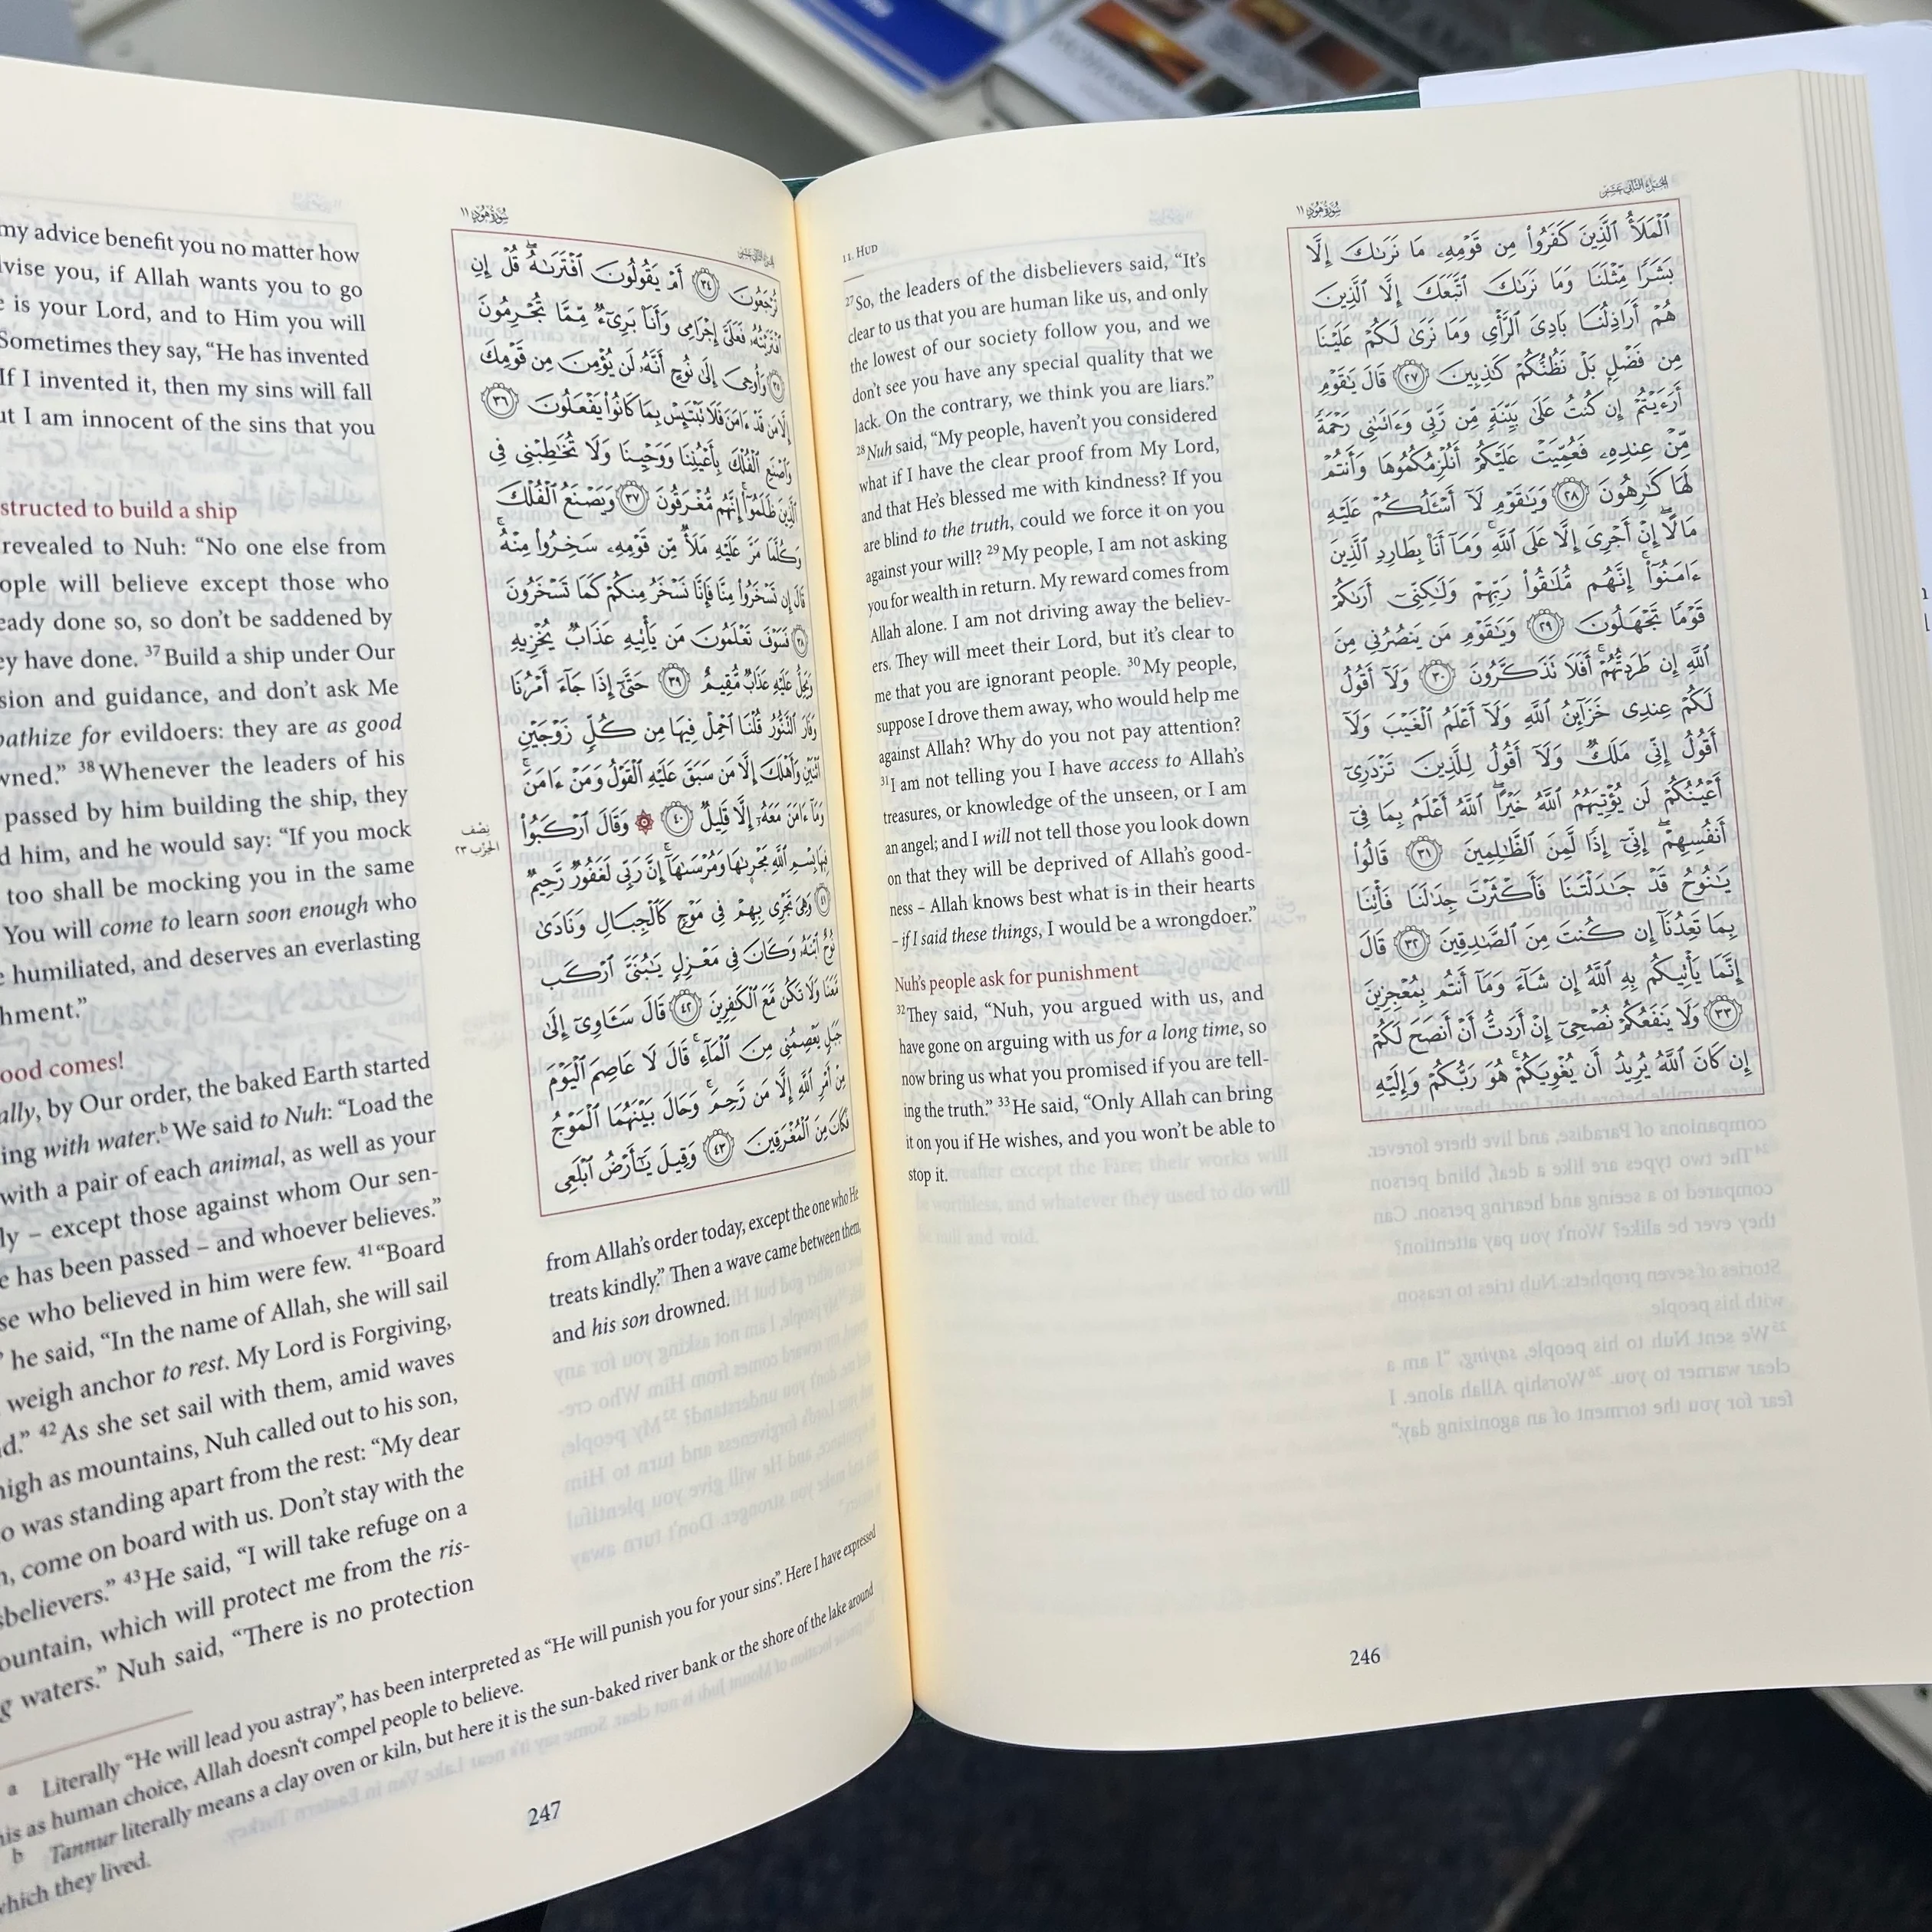 11. HUD
سُورَةُ هُودٍ ١١
الجزء الثاني عشر
²⁷So, the leaders of the disbelievers said, “It’s
clear to us that you are human like us, and only
the lowest of our society follow you, and we
don’t see you have any special quality that we
lack. On the contrary, we think you are liars.”
²⁸Nuh said, “My people, haven’t you considered
what if I have the clear proof from My Lord,
and that He’s blessed me with kindness? If you
are blind to the truth, could we force it on you
against your will? ²⁹My people, I am not asking
you for wealth in return. My reward comes from
Allah alone. I am not driving away the believ-
ers. They will meet their Lord, but it’s clear to
me that you are ignorant people. ³⁰My people,
suppose I drove them away, who would help me
against Allah? Why do you not pay attention?
³¹I am not telling you I have access to Allah’s
treasures, or knowledge of the unseen, or I am
an angel; and I will not tell those you look down
on that they will be deprived of Allah’s good-
ness – Allah knows best what is in their hearts
– if I said these things, I would be a wrongdoer.”
Nuh’s people ask for punishment
³²They said, “Nuh, you argued with us, and
have gone on arguing with us for a long time, so
now bring us what you promised if you are tell-
ing the truth.” ³³He said, “Only Allah can bring
it on you if He wishes, and you won’t be able to
stop it.
ٱلْمَلَأُ ٱلَّذِينَ كَفَرُوا۟ مِن قَوْمِهِۦ مَا نَرَىٰكَ إِلَّا
بَشَرًا مِّثْلَنَا وَمَا نَرَىٰكَ ٱتَّبَعَكَ إِلَّا ٱلَّذِينَ
هُمْ أَرَاذِلُنَا بَادِىَ ٱلرَّأْىِ وَمَا نَرَىٰ لَكُمْ عَلَيْنَا
مِن فَضْلٍۭ بَلْ نَظُنُّكُمْ كَـٰذِبِينَ ٢٧ قَالَ يَـٰقَوْمِ
أَرَءَيْتُمْ إِن كُنتُ عَلَىٰ بَيِّنَةٍ مِّن رَّبِّى وَءَاتَىٰنِى رَحْمَةً
مِّنْ عِندِهِۦ فَعُمِّيَتْ عَلَيْكُمْ أَنُلْزِمُكُمُوهَا وَأَنتُمْ
لَهَا كَـٰرِهُونَ ٢٨ وَيَـٰقَوْمِ لَآ أَسْـَٔلُكُمْ عَلَيْهِ
مَالًا ۖ إِنْ أَجْرِىَ إِلَّا عَلَى ٱللَّهِ ۚ وَمَآ أَنَا۠ بِطَارِدِ ٱلَّذِينَ
ءَامَنُوٓا۟ ۚ إِنَّهُم مُّلَـٰقُوا۟ رَبِّهِمْ وَلَـٰكِنِّىٓ أَرَىٰكُمْ
قَوْمًا تَجْهَلُونَ ٢٩ وَيَـٰقَوْمِ مَن يَنصُرُنِى مِنَ
ٱللَّهِ إِن طَرَدتُّهُمْ ۚ أَفَلَا تَذَكَّرُونَ ٣٠ وَلَآ أَقُولُ
لَكُمْ عِندِى خَزَآئِنُ ٱللَّهِ وَلَآ أَعْلَمُ ٱلْغَيْبَ وَلَآ
أَقُولُ إِنِّى مَلَكٌ وَلَآ أَقُولُ لِلَّذِينَ تَزْدَرِىٓ
أَعْيُنُكُمْ لَن يُؤْتِيَهُمُ ٱللَّهُ خَيْرًا ۖ ٱللَّهُ أَعْلَمُ بِمَا فِىٓ
أَنفُسِهِمْ ۖ إِنِّىٓ إِذًا لَّمِنَ ٱلظَّـٰلِمِينَ ٣١ قَالُوا۟
يَـٰنُوحُ قَدْ جَـٰدَلْتَنَا فَأَكْثَرْتَ جِدَٰلَنَا فَأْتِنَا
بِمَا تَعِدُنَآ إِن كُنتَ مِنَ ٱلصَّـٰدِقِينَ ٣٢ قَالَ
إِنَّمَا يَأْتِيكُم بِهِ ٱللَّهُ إِن شَآءَ وَمَآ أَنتُم بِمُعْجِزِينَ
٣٣ وَلَا يَنفَعُكُمْ نُصْحِىٓ إِنْ أَرَدتُّ أَنْ أَنصَحَ لَكُمْ
إِن كَانَ ٱللَّهُ يُرِيدُ أَن يُغْوِيَكُمْ ۚ هُوَ رَبُّكُمْ وَإِلَيْهِ
246
سُورَةُ هُودٍ ١١
my advice benefit you no matter how
vise you, if Allah wants you to go
is your Lord, and to Him you will
Sometimes they say, “He has invented
If I invented it, then my sins will fall
ut I am innocent of the sins that you
structed to build a ship
revealed to Nuh: “No one else from
ople will believe except those who
eady done so, so don’t be saddened by
ey have done. ³⁷Build a ship under Our
sion and guidance, and don’t ask Me
pathize for evildoers: they are as good
wned.” ³⁸Whenever the leaders of his
passed by him building the ship, they
d him, and he would say: “If you mock
too shall be mocking you in the same
You will come to learn soon enough who
e humiliated, and deserves an everlasting
hment.”
ood comes!
ally, by Our order, the baked Earth started
ing with water.ᵇ We said to Nuh: “Load the
with a pair of each animal, as well as your
ly – except those against whom Our sen-
e has been passed – and whoever believes.”
se who believed in him were few. ⁴¹“Board
” he said, “In the name of Allah, she will sail
weigh anchor to rest. My Lord is Forgiving,
d.” ⁴²As she set sail with them, amid waves
high as mountains, Nuh called out to his son,
o was standing apart from the rest: “My dear
n, come on board with us. Don’t stay with the
sbelievers.” ⁴³He said, “I will take refuge on a
ountain, which will protect me from the ris-
g waters.” Nuh said, “There is no protection
تُرْجَعُونَ ٣٤ أَمْ يَقُولُونَ ٱفْتَرَىٰهُ ۖ قُلْ إِنِ
ٱفْتَرَيْتُهُۥ فَعَلَىَّ إِجْرَامِى وَأَنَا۠ بَرِىٓءٌ مِّمَّا تُجْرِمُونَ
٣٥ وَأُوحِىَ إِلَىٰ نُوحٍ أَنَّهُۥ لَن يُؤْمِنَ مِن قَوْمِكَ
إِلَّا مَن قَدْ ءَامَنَ فَلَا تَبْتَئِسْ بِمَا كَانُوا۟ يَفْعَلُونَ ٣٦
وَٱصْنَعِ ٱلْفُلْكَ بِأَعْيُنِنَا وَوَحْيِنَا وَلَا تُخَـٰطِبْنِى فِى
ٱلَّذِينَ ظَلَمُوٓا۟ ۚ إِنَّهُم مُّغْرَقُونَ ٣٧ وَيَصْنَعُ ٱلْفُلْكَ
وَكُلَّمَا مَرَّ عَلَيْهِ مَلَأٌ مِّن قَوْمِهِۦ سَخِرُوا۟ مِنْهُ ۚ
قَالَ إِن تَسْخَرُوا۟ مِنَّا فَإِنَّا نَسْخَرُ مِنكُمْ كَمَا تَسْخَرُونَ
٣٨ فَسَوْفَ تَعْلَمُونَ مَن يَأْتِيهِ عَذَابٌ يُخْزِيهِ
وَيَحِلُّ عَلَيْهِ عَذَابٌ مُّقِيمٌ ٣٩ حَتَّىٰٓ إِذَا جَآءَ أَمْرُنَا
وَفَارَ ٱلتَّنُّورُ قُلْنَا ٱحْمِلْ فِيهَا مِن كُلٍّ زَوْجَيْنِ
ٱثْنَيْنِ وَأَهْلَكَ إِلَّا مَن سَبَقَ عَلَيْهِ ٱلْقَوْلُ وَمَنْ ءَامَنَ ۚ
وَمَآ ءَامَنَ مَعَهُۥٓ إِلَّا قَلِيلٌ ٤٠ ۞ وَقَالَ ٱرْكَبُوا۟
فِيهَا بِسْمِ ٱللَّهِ مَجْر۪ىٰهَا وَمُرْسَىٰهَآ ۚ إِنَّ رَبِّى لَغَفُورٌ رَّحِيمٌ
٤١ وَهِىَ تَجْرِى بِهِمْ فِى مَوْجٍ كَٱلْجِبَالِ وَنَادَىٰ
نُوحٌ ٱبْنَهُۥ وَكَانَ فِى مَعْزِلٍ يَـٰبُنَىَّ ٱرْكَب
مَّعَنَا وَلَا تَكُن مَّعَ ٱلْكَـٰفِرِينَ ٤٢ قَالَ سَـَٔاوِىٓ إِلَىٰ
جَبَلٍ يَعْصِمُنِى مِنَ ٱلْمَآءِ ۚ قَالَ لَا عَاصِمَ ٱلْيَوْمَ
مِنْ أَمْرِ ٱللَّهِ إِلَّا مَن رَّحِمَ ۚ وَحَالَ بَيْنَهُمَا ٱلْمَوْجُ
فَكَانَ مِنَ ٱلْمُغْرَقِينَ ٤٣ وَقِيلَ يَـٰٓأَرْضُ ٱبْلَعِى
نِصْف
الحِزْب ٢٣
from Allah’s order today, except the one who He
treats kindly.” Then a wave came between them,
and his son drowned.
a Literally “He will lead you astray”, has been interpreted as “He will punish you for your sins”. Here I have expressed
his as human choice, Allah doesn’t compel people to believe.
b Tannur literally means a clay oven or kiln, but here it is the sun-baked river bank or the shore of the lake around
which they lived.
247